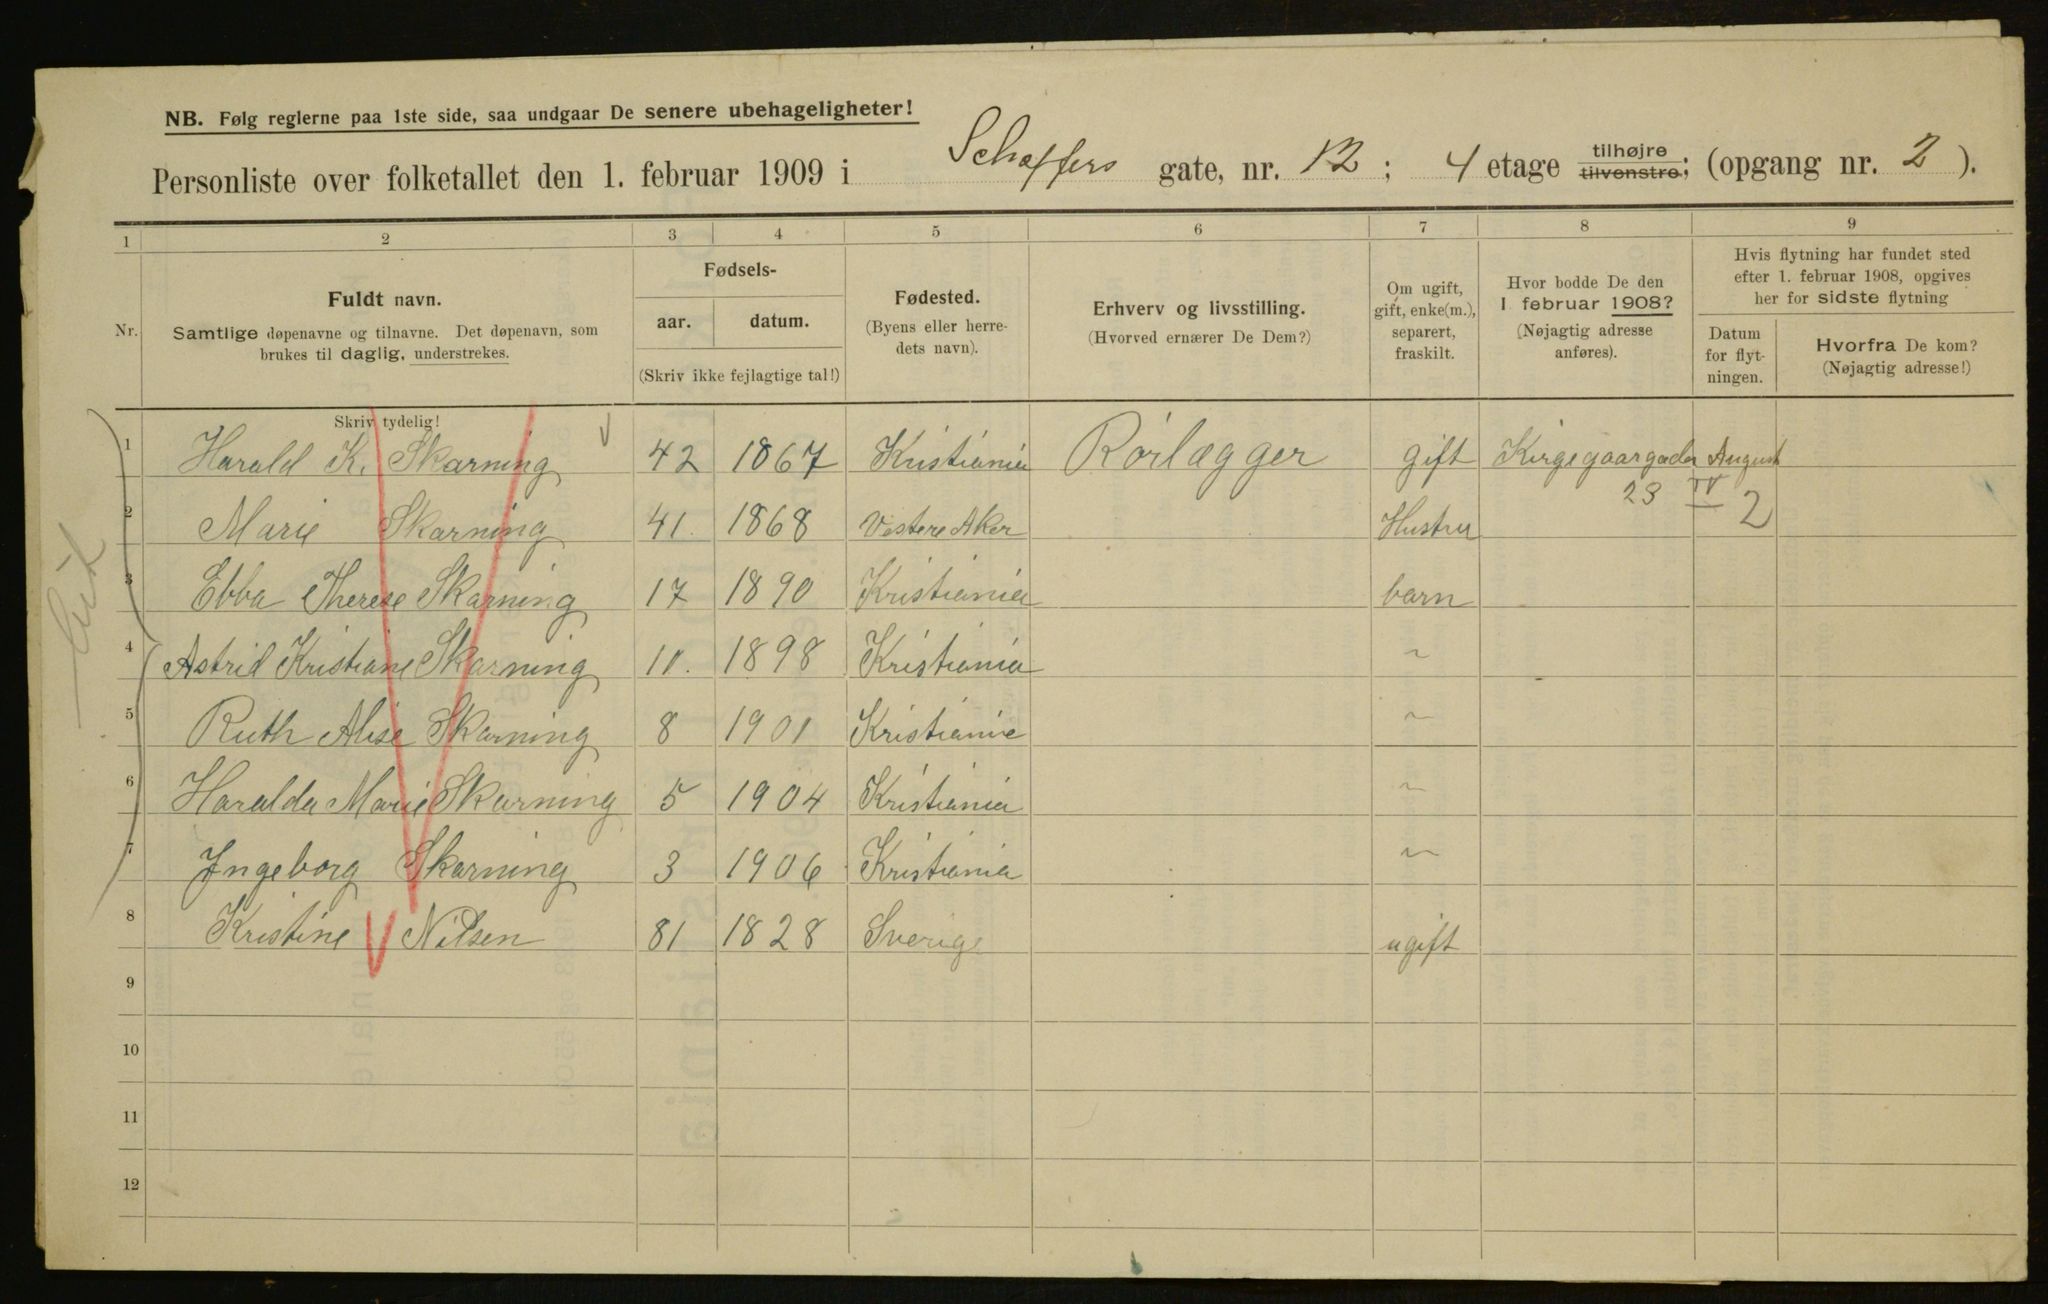 NB. Følg reglerne paa 1ste side, saa undgaar De senere ubehageligheter!
Personliste over folketallet den 1. februar 1909 i Schaffers gate, nr. 12; 4 etage tilhøjre tilvenstre; (opgang nr. 2).
1 2 3 4 5 6 7 8 9
Nr.
Fuldt navn.
Samtlige døpenavne og tilnavne. Det døpenavn, som
brukes til daglig, understrekes.
Fødsels-
aar. datum.
(Skriv ikke fejlagtige tal!)
Fødested.
(Byens eller herre-
dets navn).
Erhverv og livsstilling.
(Hvorved ernærer De Dem?)
Om ugift,
gift, enke(m.),
separert,
fraskilt.
Hvor bodde De den
1 februar 1908?
(Nøjagtig adresse
anføres).
Hvis flytning har fundet sted
efter 1. februar 1908, opgives
her for sidste flytning
Datum
for flyt-
ningen.
Hvorfra De kom?
(Nøjagtig adresse!)
Skriv tydelig!
1 Harald K. Skarning 42 1867 Kristiania Rörlægger gift Kirgegaargada August
23 IV 2
2 Marie Skarning 41. 1868 Vestere Aker Hustru
3 Ebba Therese Skarning 17 1890 Kristiania barn
4 Astrid Kristiane Skarning 11. 1898 Kristiania ~
5 Ruth Alise Skarning 8 1901 Kristiania ~
6 Haralda Marie Skarning 5 1904 Kristiania ~
7 Ingeborg Skarning 3 1906 Kristiania ~
8 Kristine Nilsen 81 1828 Sverige ugift
9
10
11
12